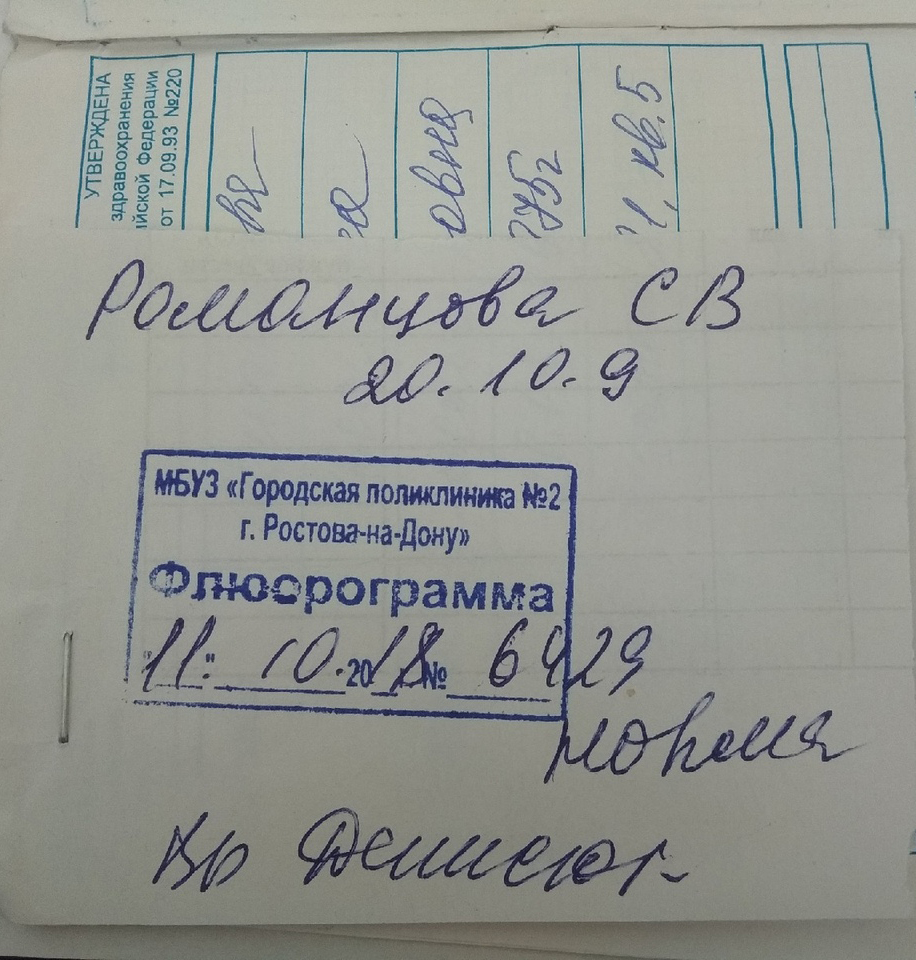 УТВЕРЖДЕНА
здравоохранения
йской Федерации
от 17.09.93 №220
овна
75г
1, кв. 5
Романцова СВ
20.10.9
МБУЗ «Городская поликлиника №2
г. Ростова-на-Дону»
Флюорограмма
11. 10. 2018 № 6429
норма
Вр